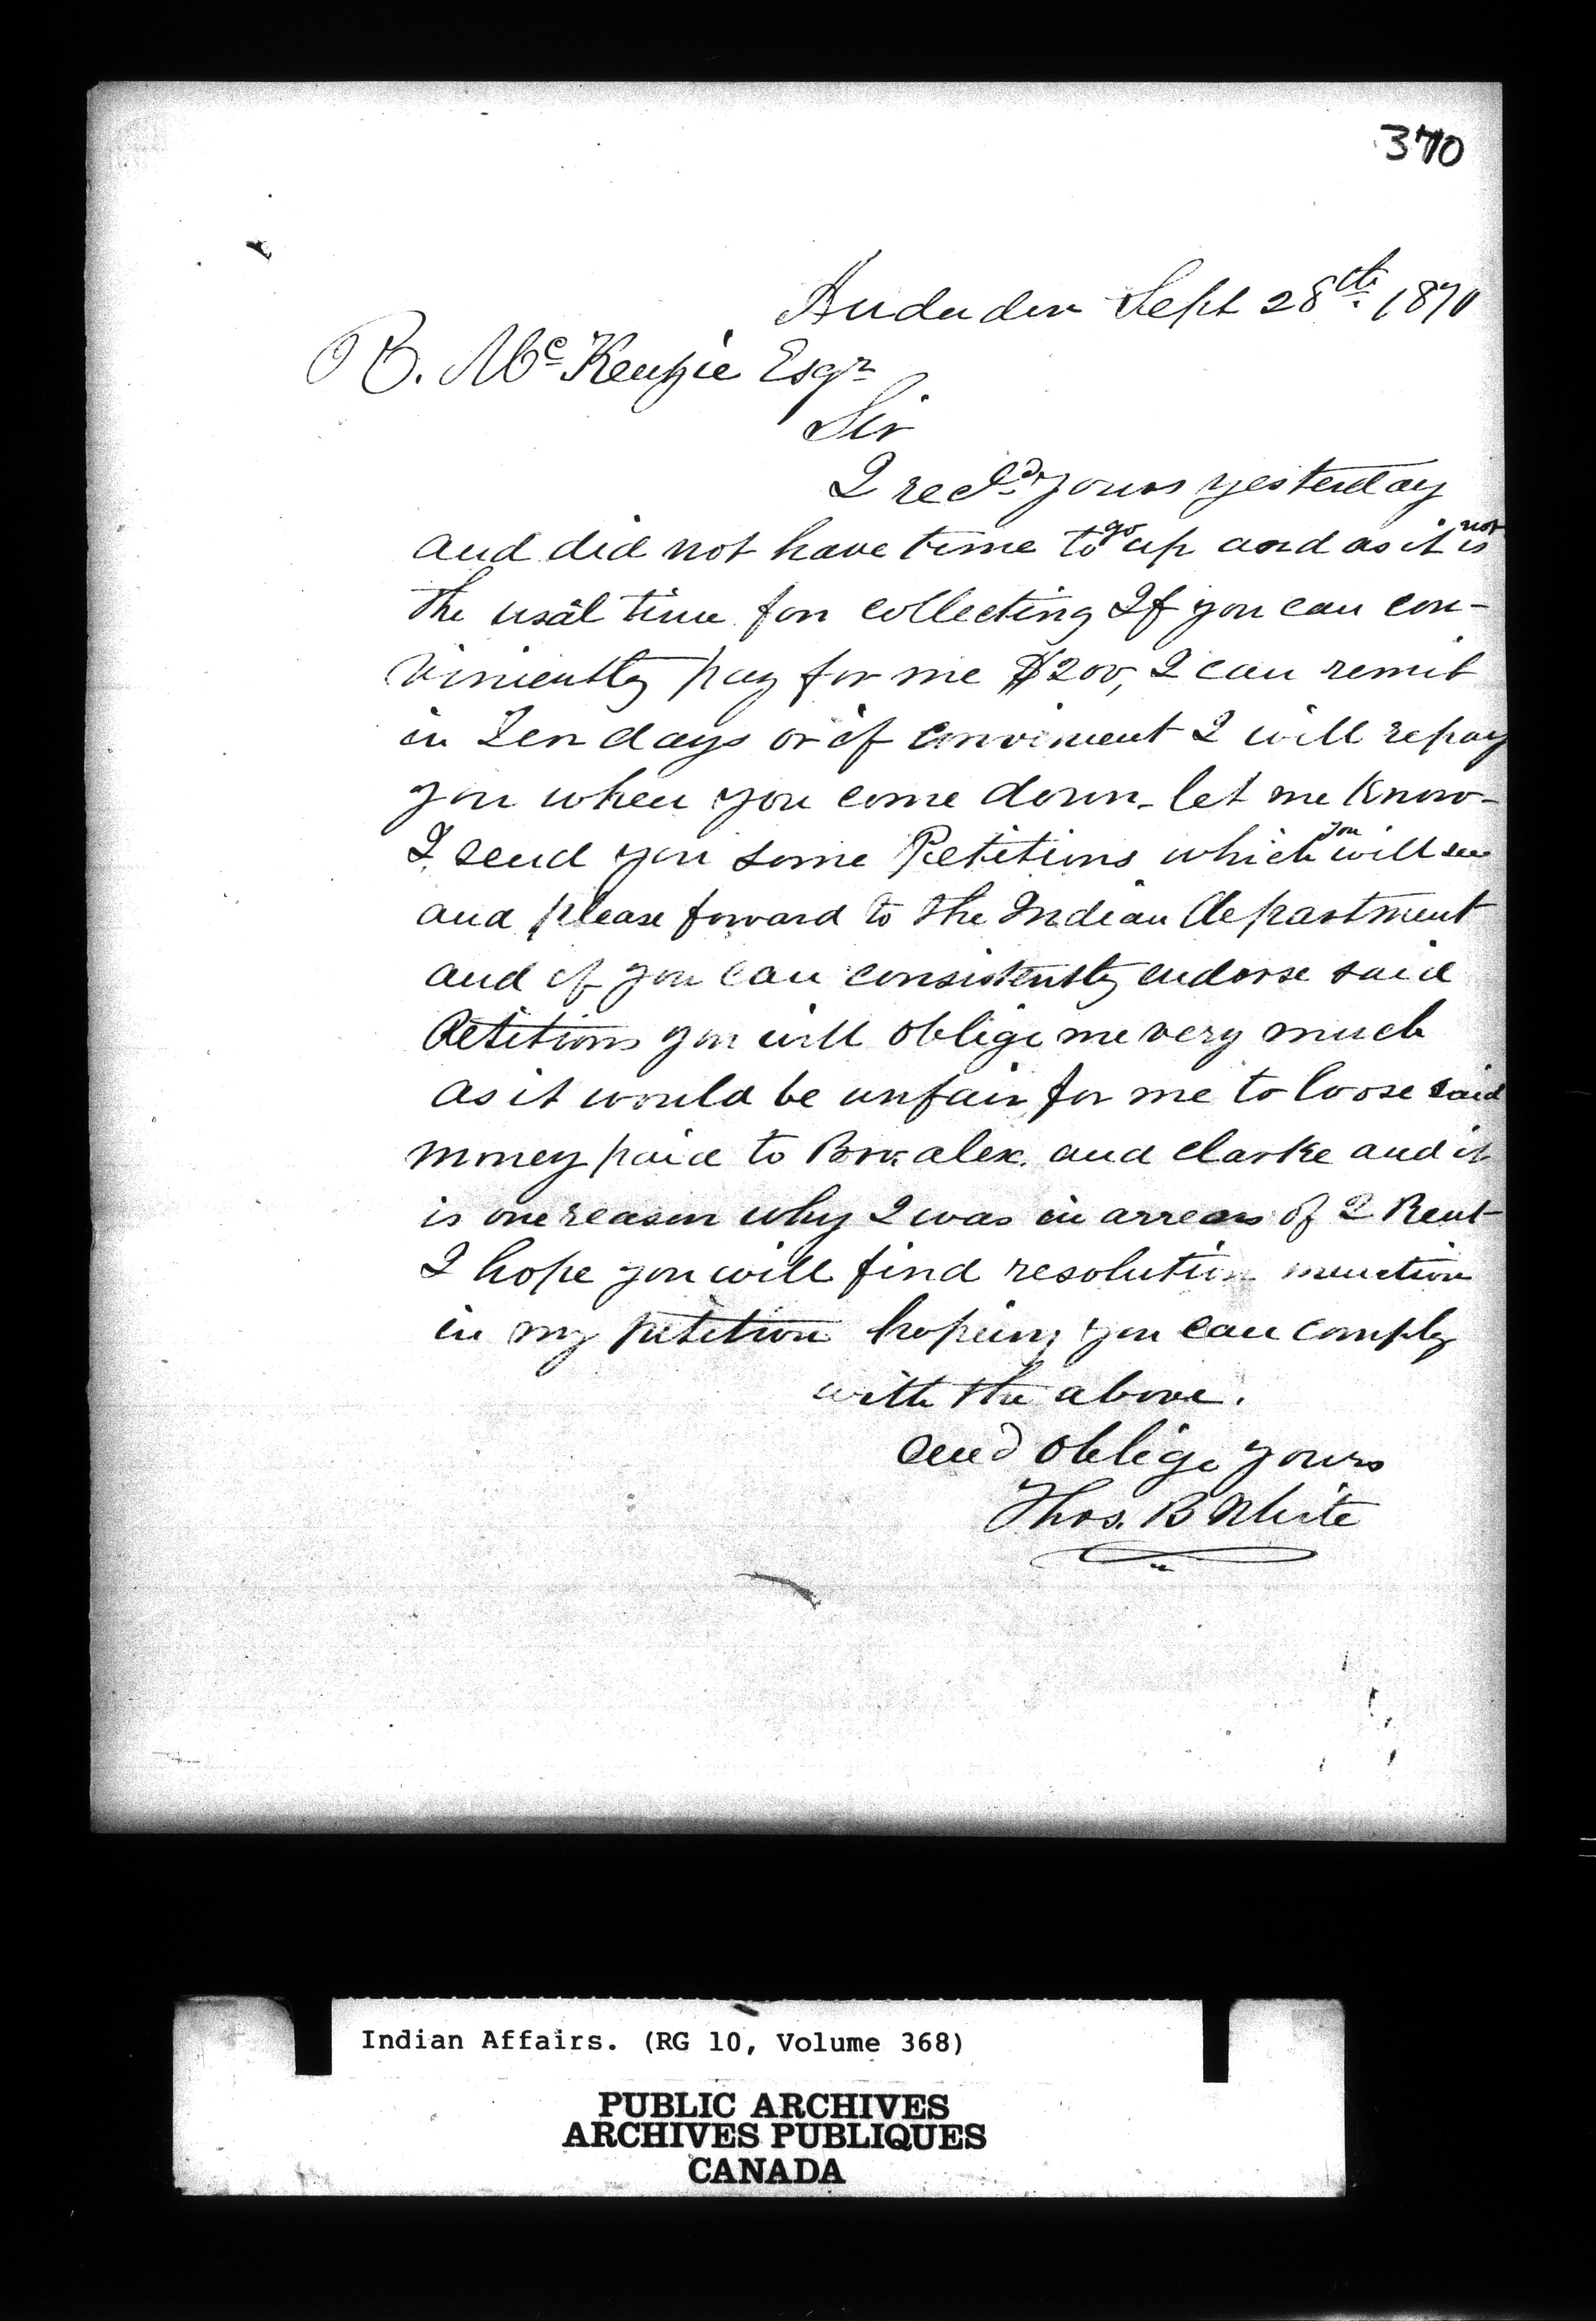 370
Anderdon Sept 28th 1870
R. McKenzie Esqr
Sir
I recd yours yesterday
and did not have time to go up and as it is not
the usal time for collecting If you can con-
viniently pay for me $200, I can remit
in Ten days or if convinient I will repay
you when you come down - let me know -
I send you some Petitions which you will see
and please forward to the Indian department
and if you can consistently endorse said
Petitions you will oblige me very much
as it would be unfair for me to loose said
money paid to alex. and Clarke and it
is one reason why I was in arrears of Rent
I hope you will find resolution mention
in my petition hoping you can comply
with the above.
and oblige yours
Thos. B White
Indian Affairs. (RG 10, Volume 368)
PUBLIC ARCHIVES
ARCHIVES PUBLIQUES
CANADA